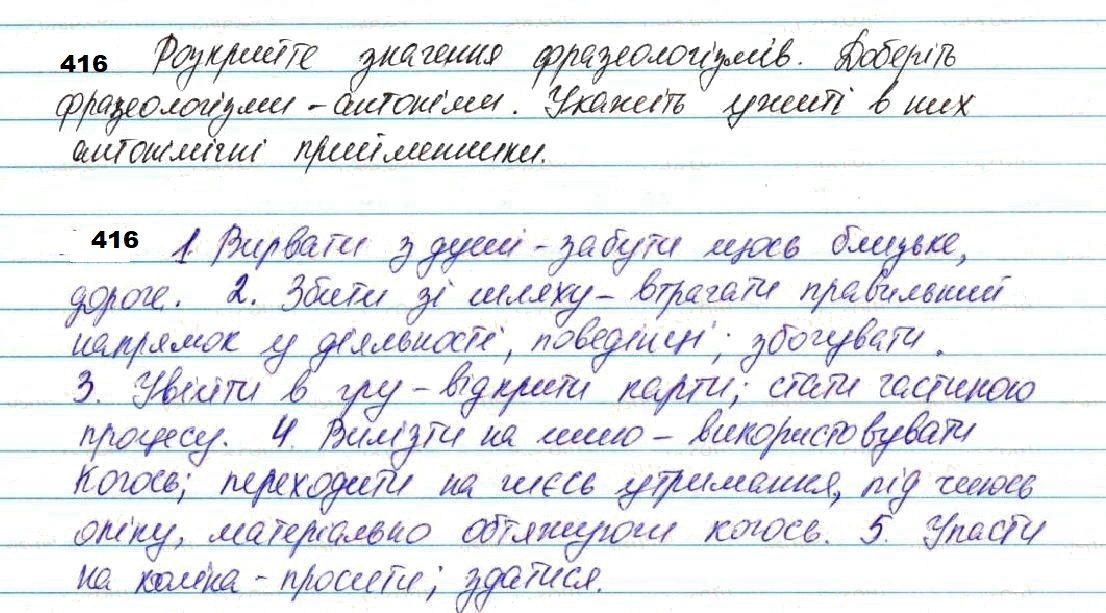 416 Розкрийте значення фразеологізмів. Доберіть
фразеологізми - антоніми. Укажіть ужиті в них
антонімічні прийменники.
416 1. Вирвати з душі - забути щось близьке,
дороге. 2. Збити зі шляху - втрачати правильний
напрямок у діяльності, поведінці; збочувати.
3. Увійти в гру - відкрити карти; стати частиною
процесу. 4. Вилізти на шию - використовувати
когось; переходити на чиєсь утримання, під чиюсь
опіку, матеріально обтяжуючи когось. 5. Упасти
на коліна - просити; здатися.